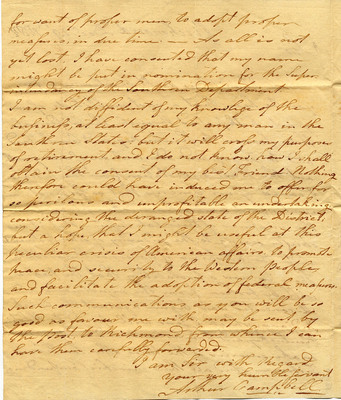 for want of proper men to adopt proper
measures, in due time — As all is not
yet lost, I have consented that my name
might be put in nomination for the Super-
intendency of the Southern Department
I am not diffident of my knowledge of the
business, at least equal to any man in the
Southern States, but it will cross my purposes
of retirement, and I do not know how I shall
obtain the consent of my best Friend. Nothing
therefore could have induced me to offer for
so perilous and unprofitable an undertaking
considering the deranged state of the District
but a hope, that I might be useful at this
peculiar crisis of American affairs, to promote
peace, and security to the Western People,
and facilitate the adoption of federal measures.
Such communications as you will be so
good as favour me with may be sent by
the post to Richmond from whence I can
have them carefully forwarded.
I am Sir, with Regard
Your very humble servant
Arthur Campbell